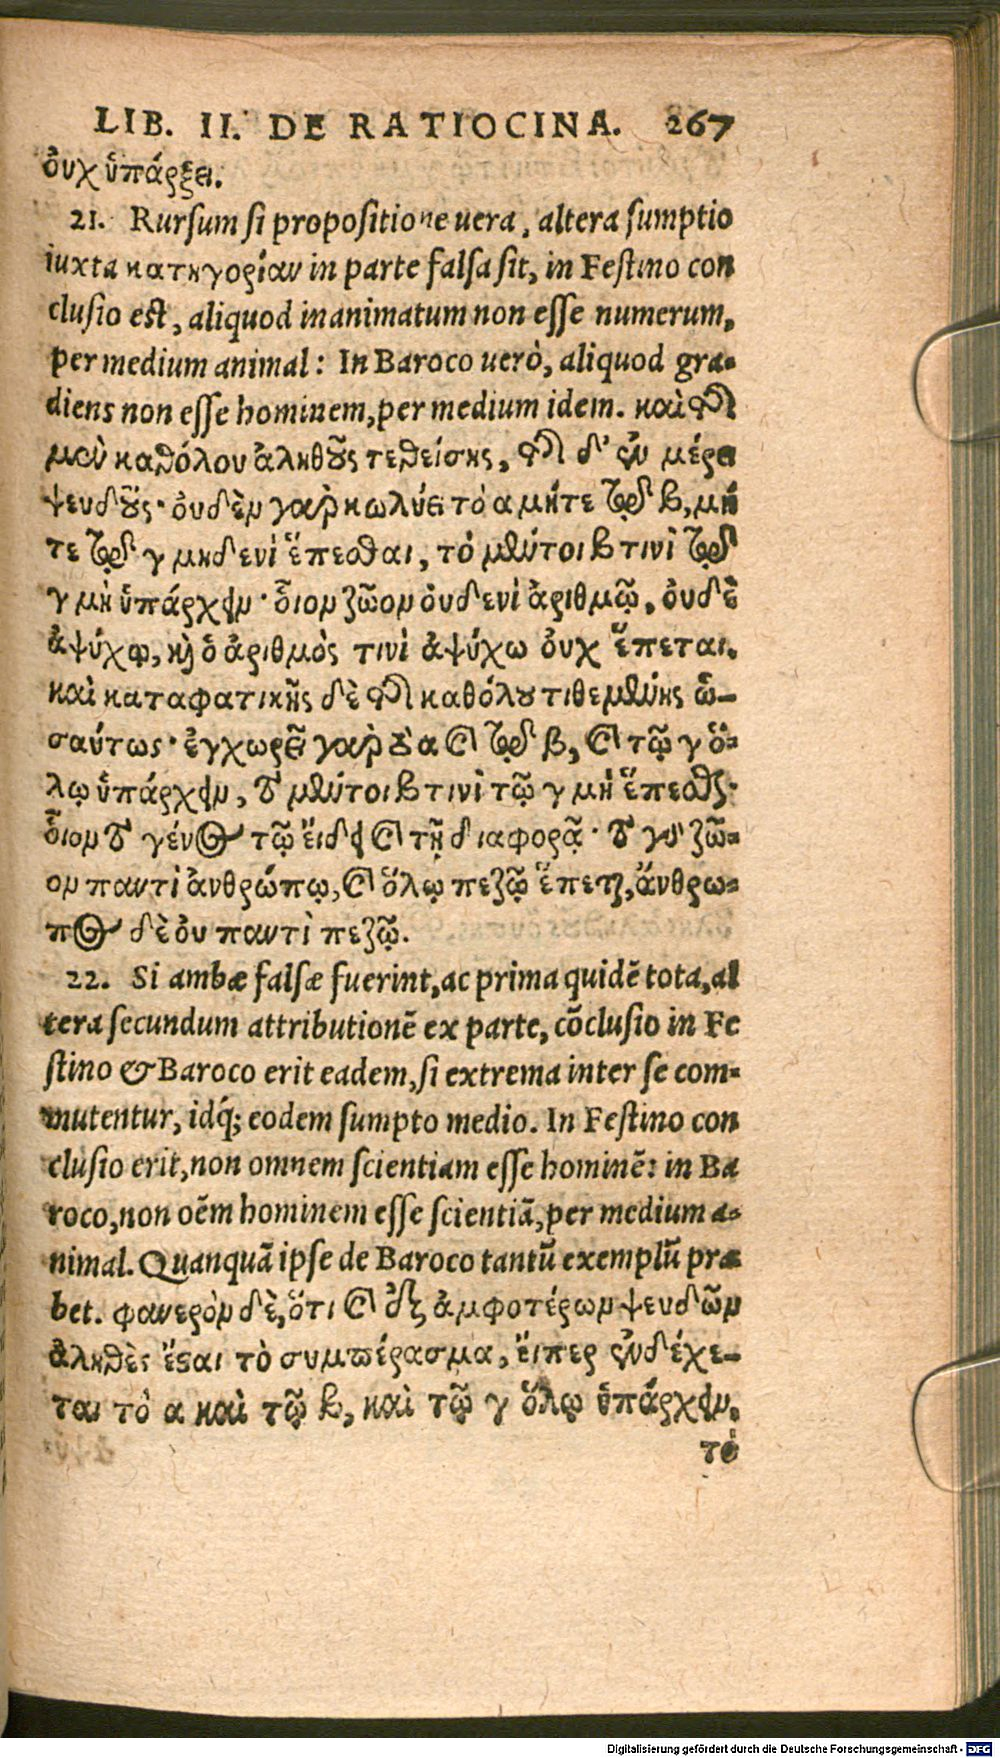 LIB. II. DE RATIOCINA. 267
οὐχ ὑπάρξει.
21. Rursum si propositione uera, altera sumptio
iuxta κατηγορίαν in parte falsa sit, in Festino con
clusio est, aliquod inanimatum non esse numerum,
per medium animal: In Baroco uerò, aliquod gra-
diens non esse hominem, per medium idem. καὶ τῆς
μὲν καθόλου ἀληθοῦς τεθείσης, τῆς δ' ἐν μέρει
ψευδοῦς· οὐδὲν γὰρ κωλύει τὸ α μήτε τῷ β, μή
τε τῷ γ μηδενὶ ἕπεσθαι, τὸ μέντοι β τινὶ τῷ
γ μὴ ὑπάρχειν· οἷον ζῶον οὐδενὶ ἀριθμῷ, οὐδὲ
ἀψύχῳ, καὶ ὁ ἀριθμὸς τινὶ ἀψύχω οὐχ ἕπεται.
καὶ καταφατικῆς δὲ τῆς καθόλου τιθεμένης ὡ-
σαύτως· ἐγχωρεῖ γὰρ τὸ α καὶ τῷ β, καὶ τῷ γ ὅ-
λῳ ὑπάρχειν, τὸ μέντοι β τινὶ τῷ γ μὴ ἕπεσθαι·
οἷον τὸ γένος τῷ εἴδει καὶ τῇ διαφορᾷ· τὸ γὰρ ζῶ-
ον παντὶ ἀνθρώπῳ, καὶ ὅλῳ πεζῷ ἕπεται, ἄνθρω-
πος δὲ οὐ παντὶ πεζῷ.
22. Si ambæ falsæ fuerint, ac prima quidē tota, al
tera secundum attributionē ex parte, cōclusio in Fe
stino & Baroco erit eadem, si extrema inter se com-
mutentur, idq́; eodem sumpto medio. In Festino con
clusio erit, non omnem scientiam esse hominē: in Ba
roco, non oēm hominem esse scientiā, per medium a-
nimal. Quanquā ipse de Baroco tantū exemplū præ
bet. φανερὸν δὲ, ὅτι καὶ ἐξ ἀμφοτέρων ψευδῶν
ἀληθὲς ἔσται τὸ συμπέρασμα, εἴπερ ἐνδέχε-
ται τὸ α καὶ τῷ β, καὶ τῷ γ ὅλῳ ὑπάρχειν,
τὸ
Digitalisierung gefördert durch die Deutsche Forschungsgemeinschaft - DFG